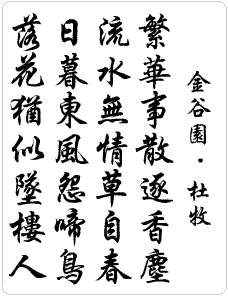 金谷園·杜牧
繁華事散逐香塵
流水無情草自春
日暮東風怨啼鳥
落花猶似墜樓人